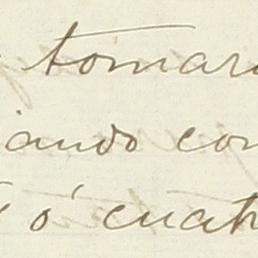 tomar
iando con
ó cuat